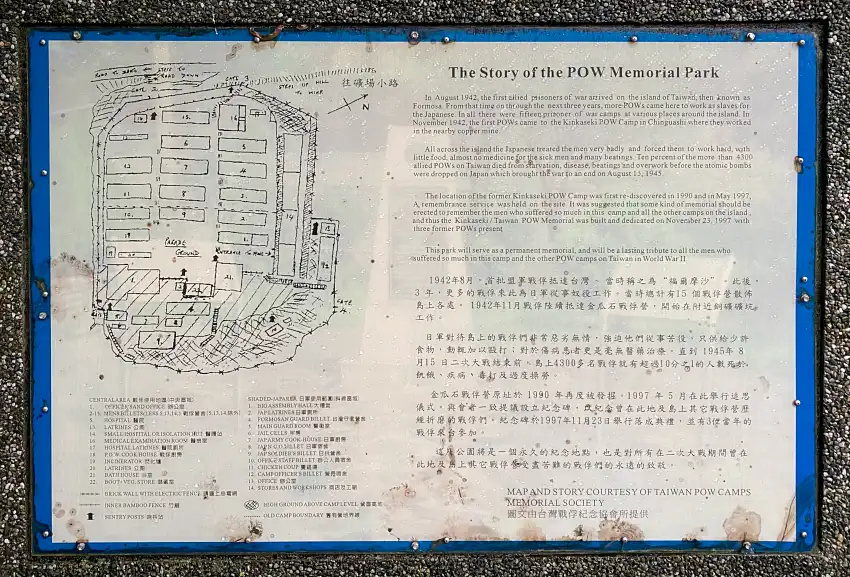 ROAD TO
STEPS TO
ROAD DOWN
GATE 2
GATE 3
STEPS UP HILL
TO MINE
往礦場小路
N
PARADE
GROUND
GATE
The Story of the POW Memorial Park
In August 1942, the first allied prisoners of war arrived on the island of Taiwan, then known as
Formosa. From that time on through the next three years, more POWs came here to work as slaves for
the Japanese. In all there were fifteen prisoner of war camps at various places around the island. In
November 1942, the first POWs came to the Kinkaseki POW Camp in Chinguashi where they worked
in the nearby copper mine.
All across the island the Japanese treated the men very badly and forced them to work hard, with
little food, almost no medicine for the sick men and many beatings. Ten percent of the more than 4300
allied POWs on Taiwan died from starvation, disease, beatings and overwork before the atomic bombs
were dropped on Japan which brought the war to an end on August 15, 1945.
The location of the former Kinkaseki POW Camp was first re-discovered in 1990 and in May 1997,
A, remembrance service was held on the site. It was suggested that some kind of memorial should be
erected to remember the men who suffered so much in this camp and all the other camps on the island,
and thus the Kinkaseki / Taiwan POW Memorial was built and dedicated on November 23, 1997 with
three former POWs present
This park will serve as a permanent memorial, and will be a lasting tribute to all the men who
suffered so much in this camp and the other POW camps on Taiwan in World War II
1942年8月，首批盟軍戰俘抵達台灣。當時稱之為“福爾摩沙”。此後，
3年，更多的戰俘來此為日軍從事奴役工作。當時總計有15個戰俘營散佈
島上各處。1942年11月戰俘陸續抵達金瓜石戰俘營，開始在附近銅礦礦坑
工作。
日軍對待島上的戰俘們非常惡劣無情，強迫他們從事苦役，只供給少許
食物，動輒加以毆打；對於傷病患者更是毫無醫藥治療，直到1945年8
月15日二次大戰結束前。島上4300多名戰俘就有超過10分之1的人數死於
飢餓、疾病、毒打及過度操勞。
金瓜石戰俘營原址於1990年再度被發掘，1997年5月在此舉行追思
儀式，與會者一致提議設立紀念碑，以紀念曾在此地及島上其它戰俘營歷
經折磨的戰俘們。紀念碑於1997年11月23日舉行落成典禮，並有3位當年的
戰俘來台參加。
這座公園將是一個永久的紀念地點，也是對所有在二次大戰期間曾在
此地及島上其它戰俘營受盡苦難的戰俘們的永遠的致敬。
MAP AND STORY COURTESY OF TAIWAN POW CAMPS
MEMORIAL SOCIETY
圖文由台灣戰俘紀念協會所提供
CENTRAL AREA 戰俘使用地區(中央區域)
1. OFFICE SAND OFFICE 辦公室
2-19. MEN BILLETS(LESS 5,13,14,) 戰俘營舍
5. HOSPITAL 醫院
13. LATRINES 公廁
14. SMALL HOSPITAL OR ISOLATION HUT
16. MEDICAL EXAMINATION ROOM
17. HOSPITAL LATRINES
18. P.O.W. COOK HOUSE 戰俘廚房
19. INCINERATOR
20. LATRINES 公廁
21. BATH HOUSE 浴室
22. BOOT+VEG. STORE
BRICK WALL WITH ELECTRIC FENCE
INNER BAMBOO FENCE 竹籬
SENTRY POSTS
SHADED-JAPAREA 日軍使用範圍(斜線區域)
1. BIG ASSEMBLY HALL 大禮堂
2. JAP LATRINE 日軍廁所
3. FORMOSAN GUARD BILLET
4. MAIN GUARD ROOM
5. JAIL CELLS 牢房
7. JAP ARMY COOK-HOUSE 日軍廚房
8. JAP N.C.O'S BILLET
9. JAP SOLDIER'S BILLET
10. OFFICE STAFF BILLET
11. CHICKEN COUP
12. CAMP OFFICER'S BILLET
13. OFFICE 辦公室
14. STORES AND WORKSHOPS
HIGH GROUND ABOVE CAMP LEVEL
OLD CAMP BOUNDARY